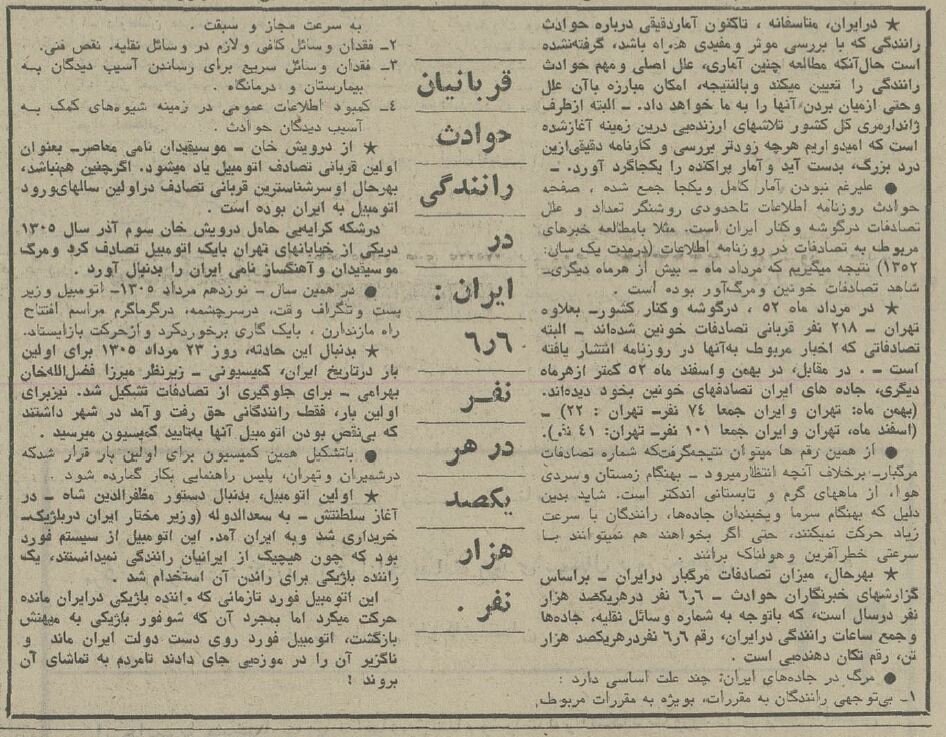 ★ درایران، متاسفانه ، تاکنون آماردقیقی درباره حوادث
رانندگی که با بررسی موثر ومفیدی همراه باشد، گرفته‌نشده
است حال‌آنکه مطالعه چنین آماری، علل اصلی ومهم حوادث
رانندگی را تعیین میکند وبالنتیجه، امکان مبارزه باآن علل
وحتی ازمیان بردن آنها را به ما خواهد داد. ـ البته ازطرف
ژاندارمری کل کشور تلاشهای ارزنده‌یی درین زمینه آغازشده
است که امیدواریم هرچه زودتر بررسی و کارنامه دقیقی‌ازین
درد بزرگ، بدست آید وآمار پراکنده را یکجاگرد آورد. ـ
● علیرغم نبودن آمار کامل ویکجا جمع شده ، صفحه
حوادث روزنامه اطلاعات تاحدودی روشنگر تعداد و علل
تصادفات درگوشه وکنار ایران است. مثلا بامطالعه خبرهای
مربوط به تصادفات در روزنامه اطلاعات (درمدت یک سال:
۱۳۵۲) نتیجه میگیریم که مرداد ماه ـ بیش از هرماه دیگری‌ـ
شاهد تصادفات خونین ومرگ‌آور بوده است .
★ در مرداد ماه ۵۲ ، درگوشه وکنار کشورـ بعلاوه
تهران ـ ۲۱۸ نفر قربانی تصادفات خونین شده‌اند ـ البته
تصادفاتی که اخبار مربوط به‌آنها در روزنامه انتشار یافته
است ـ . در مقابل، در بهمن واسفند ماه ۵۲ کمتر ازهرماه
دیگری، جاده های ایران تصادفهای خونین بخود دیده‌اند.
(بهمن ماه: تهران و ایران جمعا ۷۴ نفرـ تهران : ۲۲) ـ
(اسفند ماه، تهران و ایران جمعا ۱۰۱ نفرـ تهران: ۴۱ نفر).
● از همین رقم ها میتوان نتیجه‌گرفت‌که شماره تصادفات
مرگبارـ برخلاف آنچه انتظارمیرود ـ بهنگام زمستان وسردی
هوا، از ماههای گرم و تابستانی اندکتر است. شاید بدین
دلیل که بهنگام سرما ویخبندان جاده‌ها، رانندگان با سرعت
زیاد حرکت نمیکنند، حتی اگر بخواهند هم نمیتوانند بـا
سرعتی خطرآفرین و هولناک برانند .
★ بهرحال، میزان تصادفات مرگبار درایران ـ براساس
گزارشهای خبرنگاران حوادث ـ ۶ر۶ نفر درهریکصد هزار
نفر درسال است، که باتوجه به شماره وسائل نقلیه، جاده‌ها
وجمع ساعات رانندگی درایران، رقم ۶ر۶ نفردرهریکصد هزار
تن، رقم تکان دهنده‌یی است .
● مرگ در جاده‌های ایران: چند علت اساسی دارد :
۱ـ بی‌توجهی رانندگان به مقررات، بویژه به مقررات مربوط
قربانیان
حوادث
رانندگی
در
ایران :
۶ر۶
نفـر
در هر
یکصد
هزار
نفر .
به سرعت مجاز و سبقت .
۲ـ فقدان وسائل کافی و لازم در وسائل نقلیه. نقص فنی.
۳ـ فقدان وسائل سریع برای رساندن آسیب دیدگان بـه
بیمارستان و درمانگاه .
۴ـ کمبود اطلاعات عمومی در زمینه شیوه‌های کمک بـه
آسیب دیدگان حوادث .
★ از درویش خان ـ موسیقیدان نامی معاصرـ بعنوان
اولین قربانی تصادف اتومبیل یاد میشود. اگرچنین هم‌نباشد،
بهرحال اوسرشناسترین قربانی تصادف دراولین سالهای‌ورود
اتومبیل به ایران بوده است .
درشکه کرایه‌یی حامل درویش خان سوم آذر سال ۱۳۰۵
دریکی از خیابانهای تهران بایک اتومبیل تصادف کرد ومرگ
موسیقیدان و آهنگساز نامی ایران را بدنبال آورد .
● در همین سال ـ نوزدهم مرداد ۱۳۰۵ـ اتومبیل وزیر
پست وتلگراف وقت، درسرچشمه، درگرماگرم مراسم افتتاح
راه مازندران ، بایک گاری برخوردکرد و ازحرکت بازایستاد.
★ بدنبال این حادثه، روز ۲۳ مرداد ۱۳۰۵ برای اولین
بار درتاریخ ایران، کمیسیونی ـ زیرنظر میرزا فضل‌الله‌خان
بهرامی ـ برای جلوگیری از تصادفات تشکیل شد. نیزبرای
اولین بار، فقط رانندگانی حق رفت وآمد در شهر داشتند
که بی‌نقص بودن اتومبیل آنها به‌تایید کمیسیون میرسید .
● باتشکیل همین کمیسیون برای اولین بار قرار شدکه
درشمیران وتهران، پلیس راهنمایی بکار گمارده شود .
★ اولین اتومبیل، بدنبال دستور مظفرالدین شاه ـ در
آغاز سلطنتش ـ به سعدالدوله (وزیر مختار ایران دربلژیک‌ـ
خریداری شد وبه ایران آمد. این اتومبیل از سیستم فورد
بود که چون هیچیک از ایرانیان رانندگی نمیدانستند، یک
راننده بلژیکی برای راندن آن استخدام شد .
این اتومبیل فورد تازمانی که راننده بلژیکی درایران مانده
حرکت میکرد اما بمجرد آن که شوفور بلژیکی به میهنش
بازگشت، اتومبیل فورد روی دست دولت ایران ماند و
ناگزیر آن را در موزه‌یی جای دادند تامردم به تماشای آن
بروند !